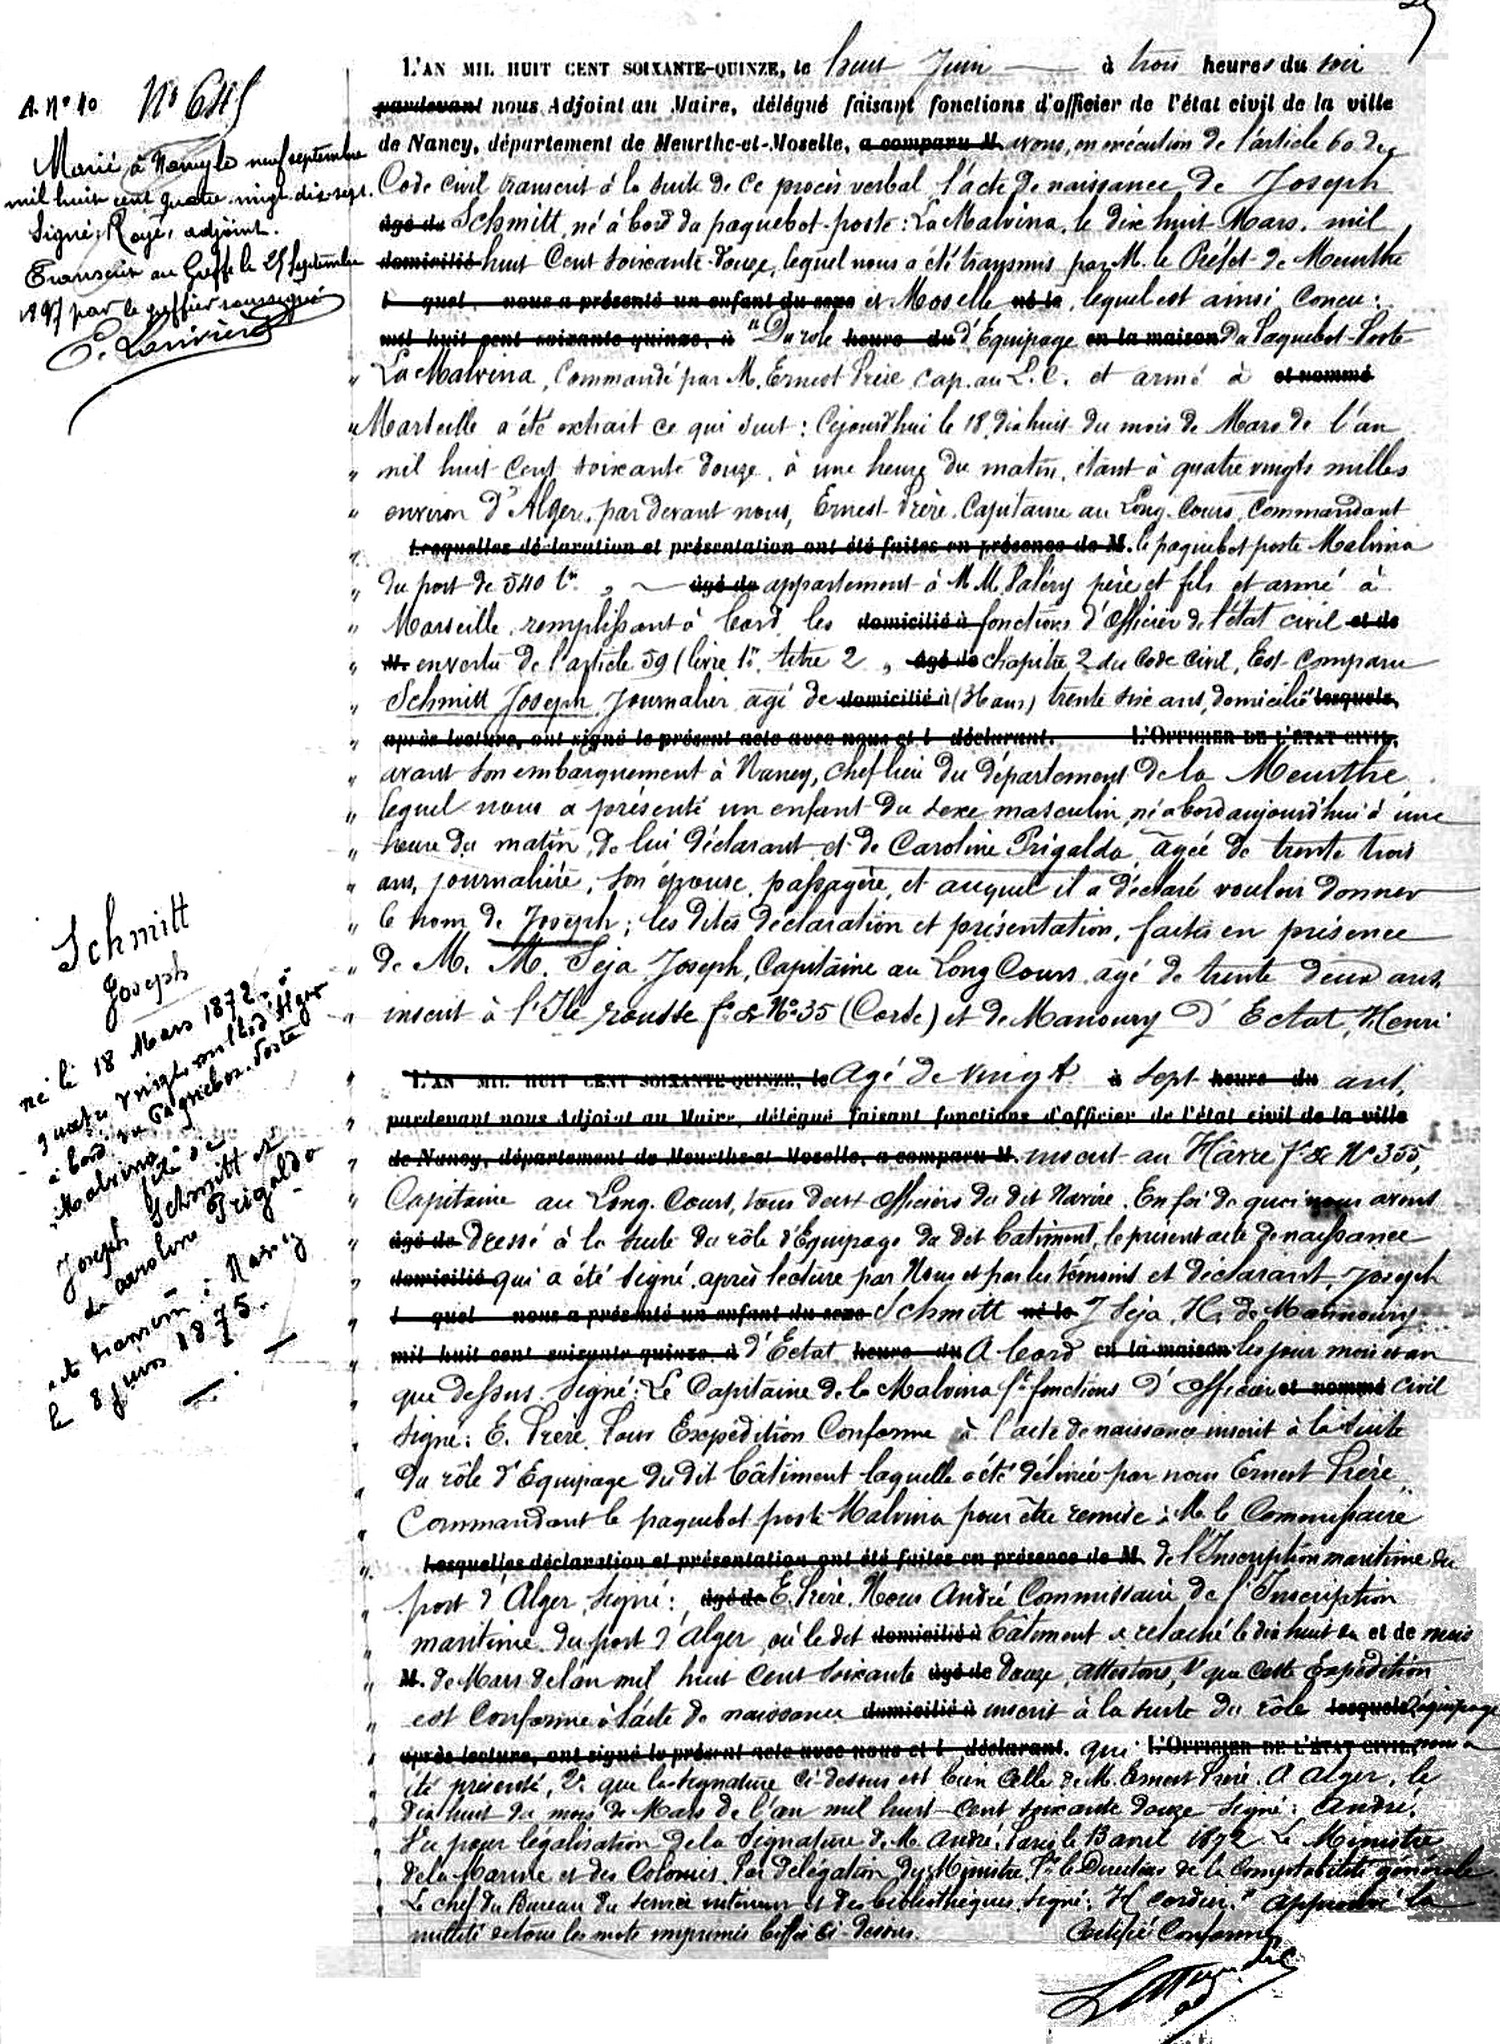 A. N° 40
N° 645
Marié à Nancy le neuf septembre
mil huit cent quatre vingt dix sept.
Signé: Royé, adjoint.
Transcrit au Greffe le 25 Septembre
1897 par le greffier soussigné
L'AN MIL HUIT CENT SOIXANTE-QUINZE, le huit Juin à trois heures du soir
pardevant nous Adjoint au Maire, délégué faisant fonctions d'officier de l'état civil de la ville
de Nancy, département de Meurthe-et-Moselle, a comparu M. avons, en exécution de l'article 60 du
Code civil transcrit à la suite de ce procès verbal l'acte de naissance de Joseph
âgé de Schmitt, né à bord du paquebot-poste: La Malvina, le dix huit Mars, mil
domicilié huit Cent soixante-douze, lequel nous a été transmis par M. le Préfet de Meurthe
l quel, nous a présenté un enfant du sexe et Moselle né le, lequel est ainsi Conçu:
mil huit cent soixante quinze, à "Du rôle heure du d'Equipage en la maison du Paquebot-Poste
" La Malvina, Commandé par M. Ernest Prère cap. au L. C. et armé à et nommé
" Marseille a été extrait ce qui suit: Cejourd'hui le 18, dix huit du mois de Mars de l'an
" mil huit Cent soixante douze, à une heure du matin, étant à quatre vingts milles
" environ d'Alger, par devant nous, Ernest Prère, Capitaine au Long Cours, Commandant
" Lesquelles déclaration et présentation ont été faites en présence de M. le paquebot poste Malvina
" du port de 540 tx âgé de appartement à M.M. Valéry père et fils et armé à
" Marseille, remplissant à bord les domicilié à fonctions d'Officier de l'état civil et de
" M. en vertu de l'article 59 (livre 1er, titre 2, âgé de chapitre 2 du Code Civil, Est Comparu
" Schmitt Joseph, Journalier agé de domicilié à (36 ans) trente six ans, domicilié lesquels,
" après lecture, ont signé le présent acte avec nous et l déclarant. L'OFFICIER DE L'ÉTAT CIVIL,
" avant son embarquement à Nancy, chef lieu du département de la Meurthe
" lequel nous a présenté un enfant du sexe masculin, né à bord aujourd'hui à une
" heure du matin, de lui déclarant et de Caroline Prigaldo, agée de trente trois
" ans, journalière, son épouse, passagère, et auquel il a déclaré vouloir donner
" le nom de Joseph; les dites déclaration et présentation, faites en présence
" de M. M. Séja Joseph, Capitaine au Long Cours agé de trente deux ans
" inscrit à l'Ile rousse N° 35 (Corse) et de Manoury d'Ectat, Henri
Schmitt
Joseph
né le 18 Mars 1872, à
quatre vingts milles d'Alger
à bord du Paquebot-Poste
Malvina
fils de
Joseph Schmitt et
de Caroline Prigaldo
acte transcrit à Nancy
le 8 Juin 1875.
" L'AN MIL HUIT CENT SOIXANTE-QUINZE, le Agé de vingt à sept heure du ans,
" pardevant nous Adjoint au Maire, délégué faisant fonctions d'officier de l'état civil de la ville
" de Nancy, département de Meurthe-et-Moselle, a comparu M. inscrit au Hâvre N° 355,
" Capitaine au Long-Cours, tous deux officiers du dit Navire. En foi de quoi nous avons
" âgé de dressé à la suite du rôle d'Equipage du dit bâtiment, le présent acte de naissance
" domicilié qui a été signé après lecture par Nous et par les témoins et déclarant Joseph
" l quel nous a présenté un enfant du sexe Schmitt né le J Séja, H. de Mannoury
" mil huit cent soixante quinze, à d'Ectat heure du A bord en la maison les jour mois et an
" que dessus. Signé: Le Capitaine de la Malvina fonctions d'Officier et nommé civil
" Signé: E. Prère. Pour Expédition Conforme à l'acte de naissance inscrit à la suite
" du rôle d'Equipage du dit bâtiment laquelle a été délivrée par nous Ernest Prère
" Commandant le paquebot poste Malvina pour être remise à M. le Commissaire
" Lesquelles déclaration et présentation ont été faites en présence de M. de l'Inscription maritime du
" port d'Alger, signé: âgé de E. Prère. Nous André Commissaire de l'Inscription
" maritime du port d'Alger, où le dit domicilié à bâtiment a relaché le dix huit du et de mois
" M. de Mars de l'an mil huit cent soixante âgé de douze, attestons, 1° que cette Expédition
" est Conforme à l'acte de naissance domicilié à inscrit à la suite du rôle lesquels d'équipage
" après lecture, ont signé le présent acte avec nous et l déclarant. qui L'OFFICIER DE L'ÉTAT CIVIL, nous a
" été présenté, 2° que la signature ci-dessus est bien celle de M. Ernest Prère. A Alger, le
" dix huit du mois de Mars de l'an mil huit cent soixante douze signé: André.
" Vu pour légalisation de la signature de M. André. Paris le 13 avril 1872 Le Ministre
" de la Marine et des Colonies. Par délégation du Ministre, Pr le Directeur de la Comptabilité générale
" Le chef du Bureau du service intérieur et des bibliothèques, signé: H Cordier." Approuvé la
nullité de tous les mots imprimés biffés ci-dessus. Certifié Conforme,